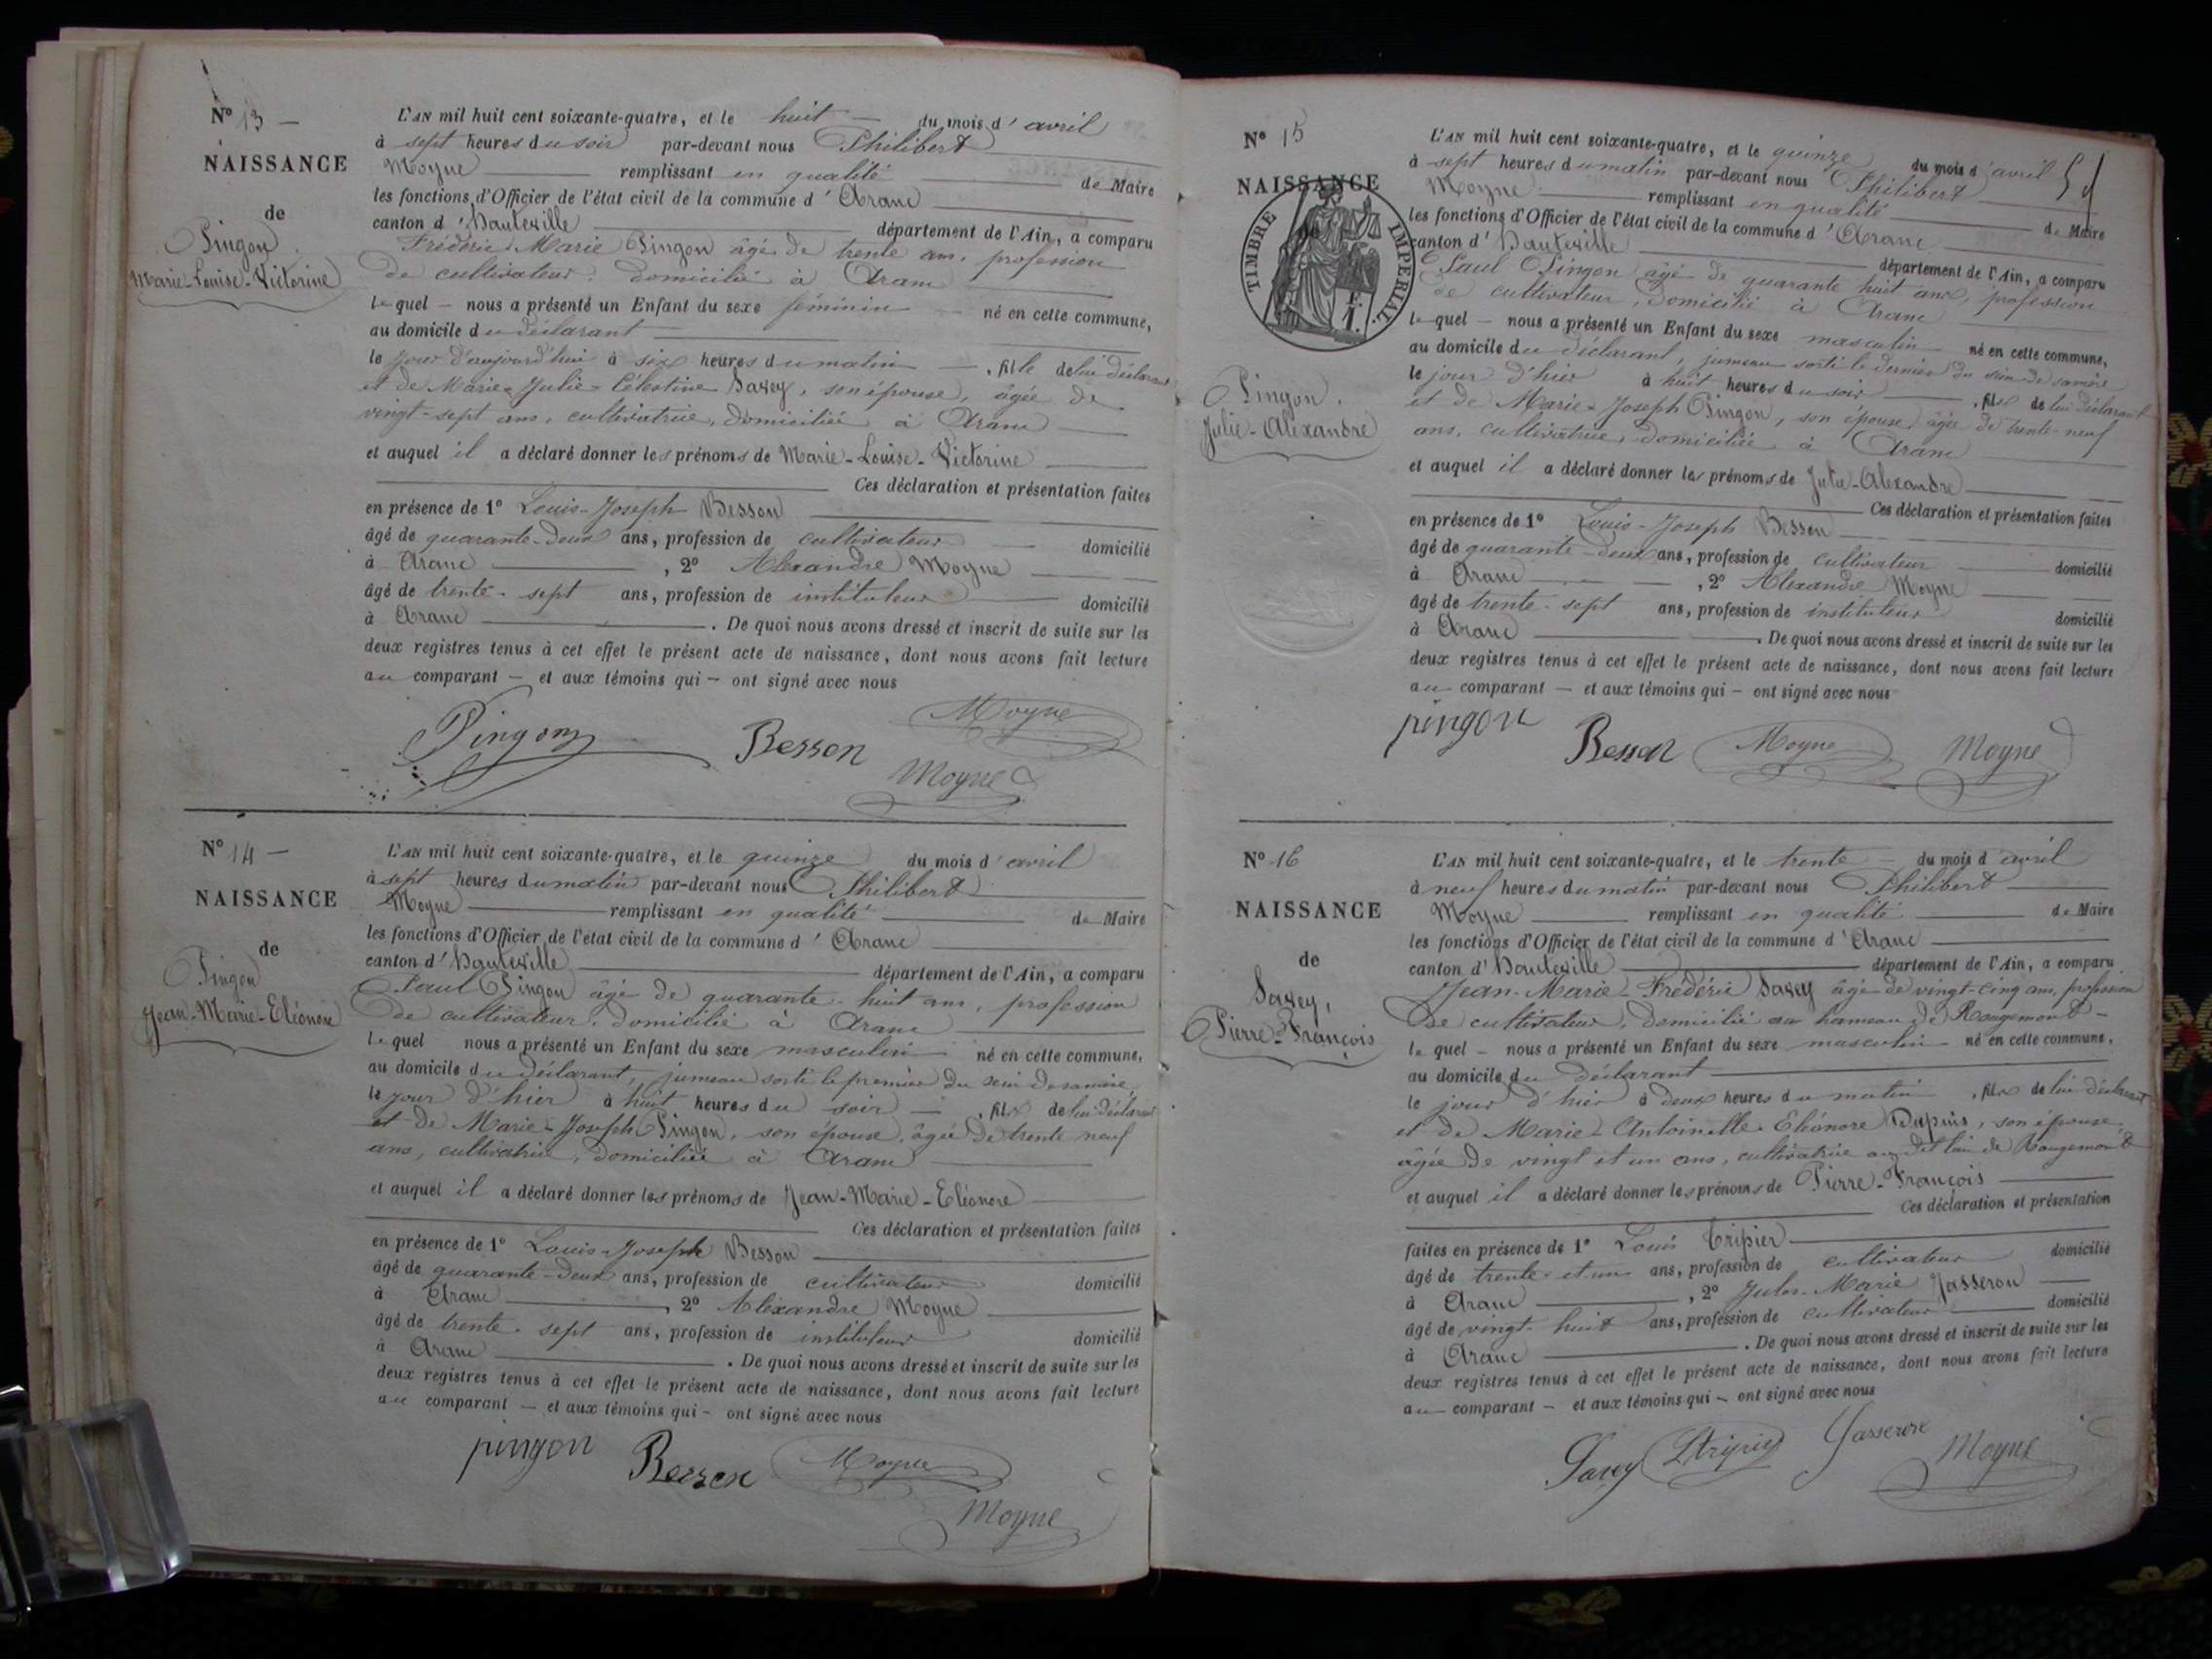 N° 13 —
NAISSANCE
de
Pingon
Marie-Louise-Victorine
L'AN mil huit cent soixante-quatre, et le huit — du mois d'avril
à sept heures du soir par-devant nous Philibert
Moyne remplissant en qualité de Maire
les fonctions d'Officier de l'état civil de la commune d'Aranc
canton d'Hauteville département de l'Ain, a comparu
Frédéric Marie Pingon âgé de trente ans, profession
de cultivateur, domicilié à Aranc
lequel — nous a présenté un Enfant du sexe féminin né en cette commune,
au domicile du déclarant
le jour d'aujourd'hui à six heures du matin — , fille de lui déclarant
et de Marie-Julie-Célestine Savey, son épouse, âgée de
vingt-sept ans, cultivatrice, domiciliée à Aranc —
et auquel il a déclaré donner les prénoms de Marie-Louise-Victorine
Ces déclaration et présentation faites
en présence de 1° Louis-Joseph Besson
âgé de quarante-deux ans, profession de cultivateur — domicilié
à Aranc , 2° Alexandre Moyne
âgé de trente-sept ans, profession de instituteur domicilié
à Aranc . De quoi nous avons dressé et inscrit de suite sur les
deux registres tenus à cet effet le présent acte de naissance, dont nous avons fait lecture
au comparant — et aux témoins qui — ont signé avec nous
Pingon Besson Moyne
Moyne
N° 14 —
NAISSANCE
de
Pingon
Jean-Marie-Eléonore
L'AN mil huit cent soixante-quatre, et le quinze du mois d'avril
à sept heures du matin par-devant nous Philibert
Moyne remplissant en qualité de Maire
les fonctions d'Officier de l'état civil de la commune d'Aranc
canton d'Hauteville département de l'Ain, a comparu
Paul Pingon âgé de quarante-huit ans, profession
de cultivateur, domicilié à Aranc
lequel nous a présenté un Enfant du sexe masculin né en cette commune,
au domicile du déclarant, jumeau sorti le premier du sein de sa mère
le jour d'hier à huit heures du soir — , fils de lui déclarant
et de Marie-Joseph Pingon, son épouse, âgée de trente neuf
ans, cultivatrice, domiciliée à Aranc
et auquel il a déclaré donner les prénoms de Jean-Marie-Eléonore
Ces déclaration et présentation faites
en présence de 1° Louis-Joseph Besson
âgé de quarante-deux ans, profession de cultivateur domicilié
à Aranc , 2° Alexandre Moyne
âgé de trente-sept ans, profession de instituteur domicilié
à Aranc . De quoi nous avons dressé et inscrit de suite sur les
deux registres tenus à cet effet le présent acte de naissance, dont nous avons fait lecture
au comparant — et aux témoins qui — ont signé avec nous
pingon Besson Moyne
Moyne
N° 15
NAISSANCE
TIMBRE IMPERIAL
1 F.
Pingon
Julie-Alexandre
L'AN mil huit cent soixante-quatre, et le quinze du mois d'avril
à sept heures du matin par-devant nous Philibert
Moyne remplissant en qualité de Maire
les fonctions d'Officier de l'état civil de la commune d'Aranc
canton d'Hauteville département de l'Ain, a comparu
Paul Pingon âgé de quarante huit ans, profession
de cultivateur, domicilié à Aranc
lequel — nous a présenté un Enfant du sexe masculin né en cette commune,
au domicile du déclarant, jumeau sorti le dernier du sein de sa mère
le jour d'hier à huit heures du soir , fils de lui déclarant
et de Marie-Joseph Pingon, son épouse, âgée de trente-neuf
ans, cultivatrice, domiciliée à Aranc
et auquel il a déclaré donner les prénoms de Alexandre
Ces déclaration et présentation faites
en présence de 1° Louis-Joseph Besson
âgé de quarante-deux ans, profession de cultivateur domicilié
à Aranc — , 2° Alexandre Moyne
âgé de trente-sept ans, profession de instituteur domicilié
à Aranc . De quoi nous avons dressé et inscrit de suite sur les
deux registres tenus à cet effet le présent acte de naissance, dont nous avons fait lecture
au comparant — et aux témoins qui — ont signé avec nous
pingon Besson Moyne Moyne
N° 16
NAISSANCE
de
Savey,
Pierre-François
L'AN mil huit cent soixante-quatre, et le trente — du mois d'avril
à neuf heures du matin par-devant nous Philibert
Moyne remplissant en qualité de Maire
les fonctions d'Officier de l'état civil de la commune d'Aranc
canton d'Hauteville département de l'Ain, a comparu
Jean-Marie-Frédéric Savey âgé de vingt-cinq ans, profession
de cultivateur, domicilié au hameau de Rougemont —
lequel — nous a présenté un Enfant du sexe masculin — né en cette commune,
au domicile du déclarant
le jour d'hier à deux heures du matin , fils de lui déclarant
et de Marie-Antoinette-Eléonore Dupuis, son épouse,
âgée de vingt et un ans, cultivatrice audit lieu de Rougemont
et auquel il a déclaré donner les prénoms de Pierre-François
Ces déclaration et présentation
faites en présence de 1° Louis Tripier
âgé de trente et un ans, profession de cultivateur domicilié
à Aranc , 2° Jules-Marie Jasseron
âgé de vingt-huit ans, profession de cultivateur domicilié
à Aranc . De quoi nous avons dressé et inscrit de suite sur les
deux registres tenus à cet effet le présent acte de naissance, dont nous avons fait lecture
au comparant — et aux témoins qui — ont signé avec nous
Savey Ltripier Jasseron Moyne